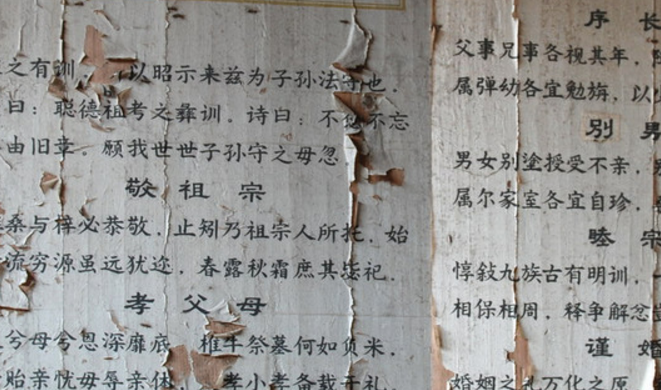 之有训,以昭示来兹为子孙法守也.
曰:聪德祖考之彝训.诗曰:不愆不忘
由旧章.愿我世世子孙守之毋忽
敬祖宗
桑与梓必恭敬.止矧乃祖宗人所托.始
流穷源虽远犹迩.春露秋霜庶其毖祀.
孝父母
兮母兮恩深靡底.椎牛祭墓何如负米.
贻亲忧毋辱亲体.孝小孝备载于礼.
序长
父事兄事各视其年,
属弹幼各宜勉旃,以
别男
男女别塗授受不亲,
属尔家室各宜自珍,
睦宗
惇敍九族古有明训,
相保相周,释争解忿
谨婚
婚姻之礼万化之原